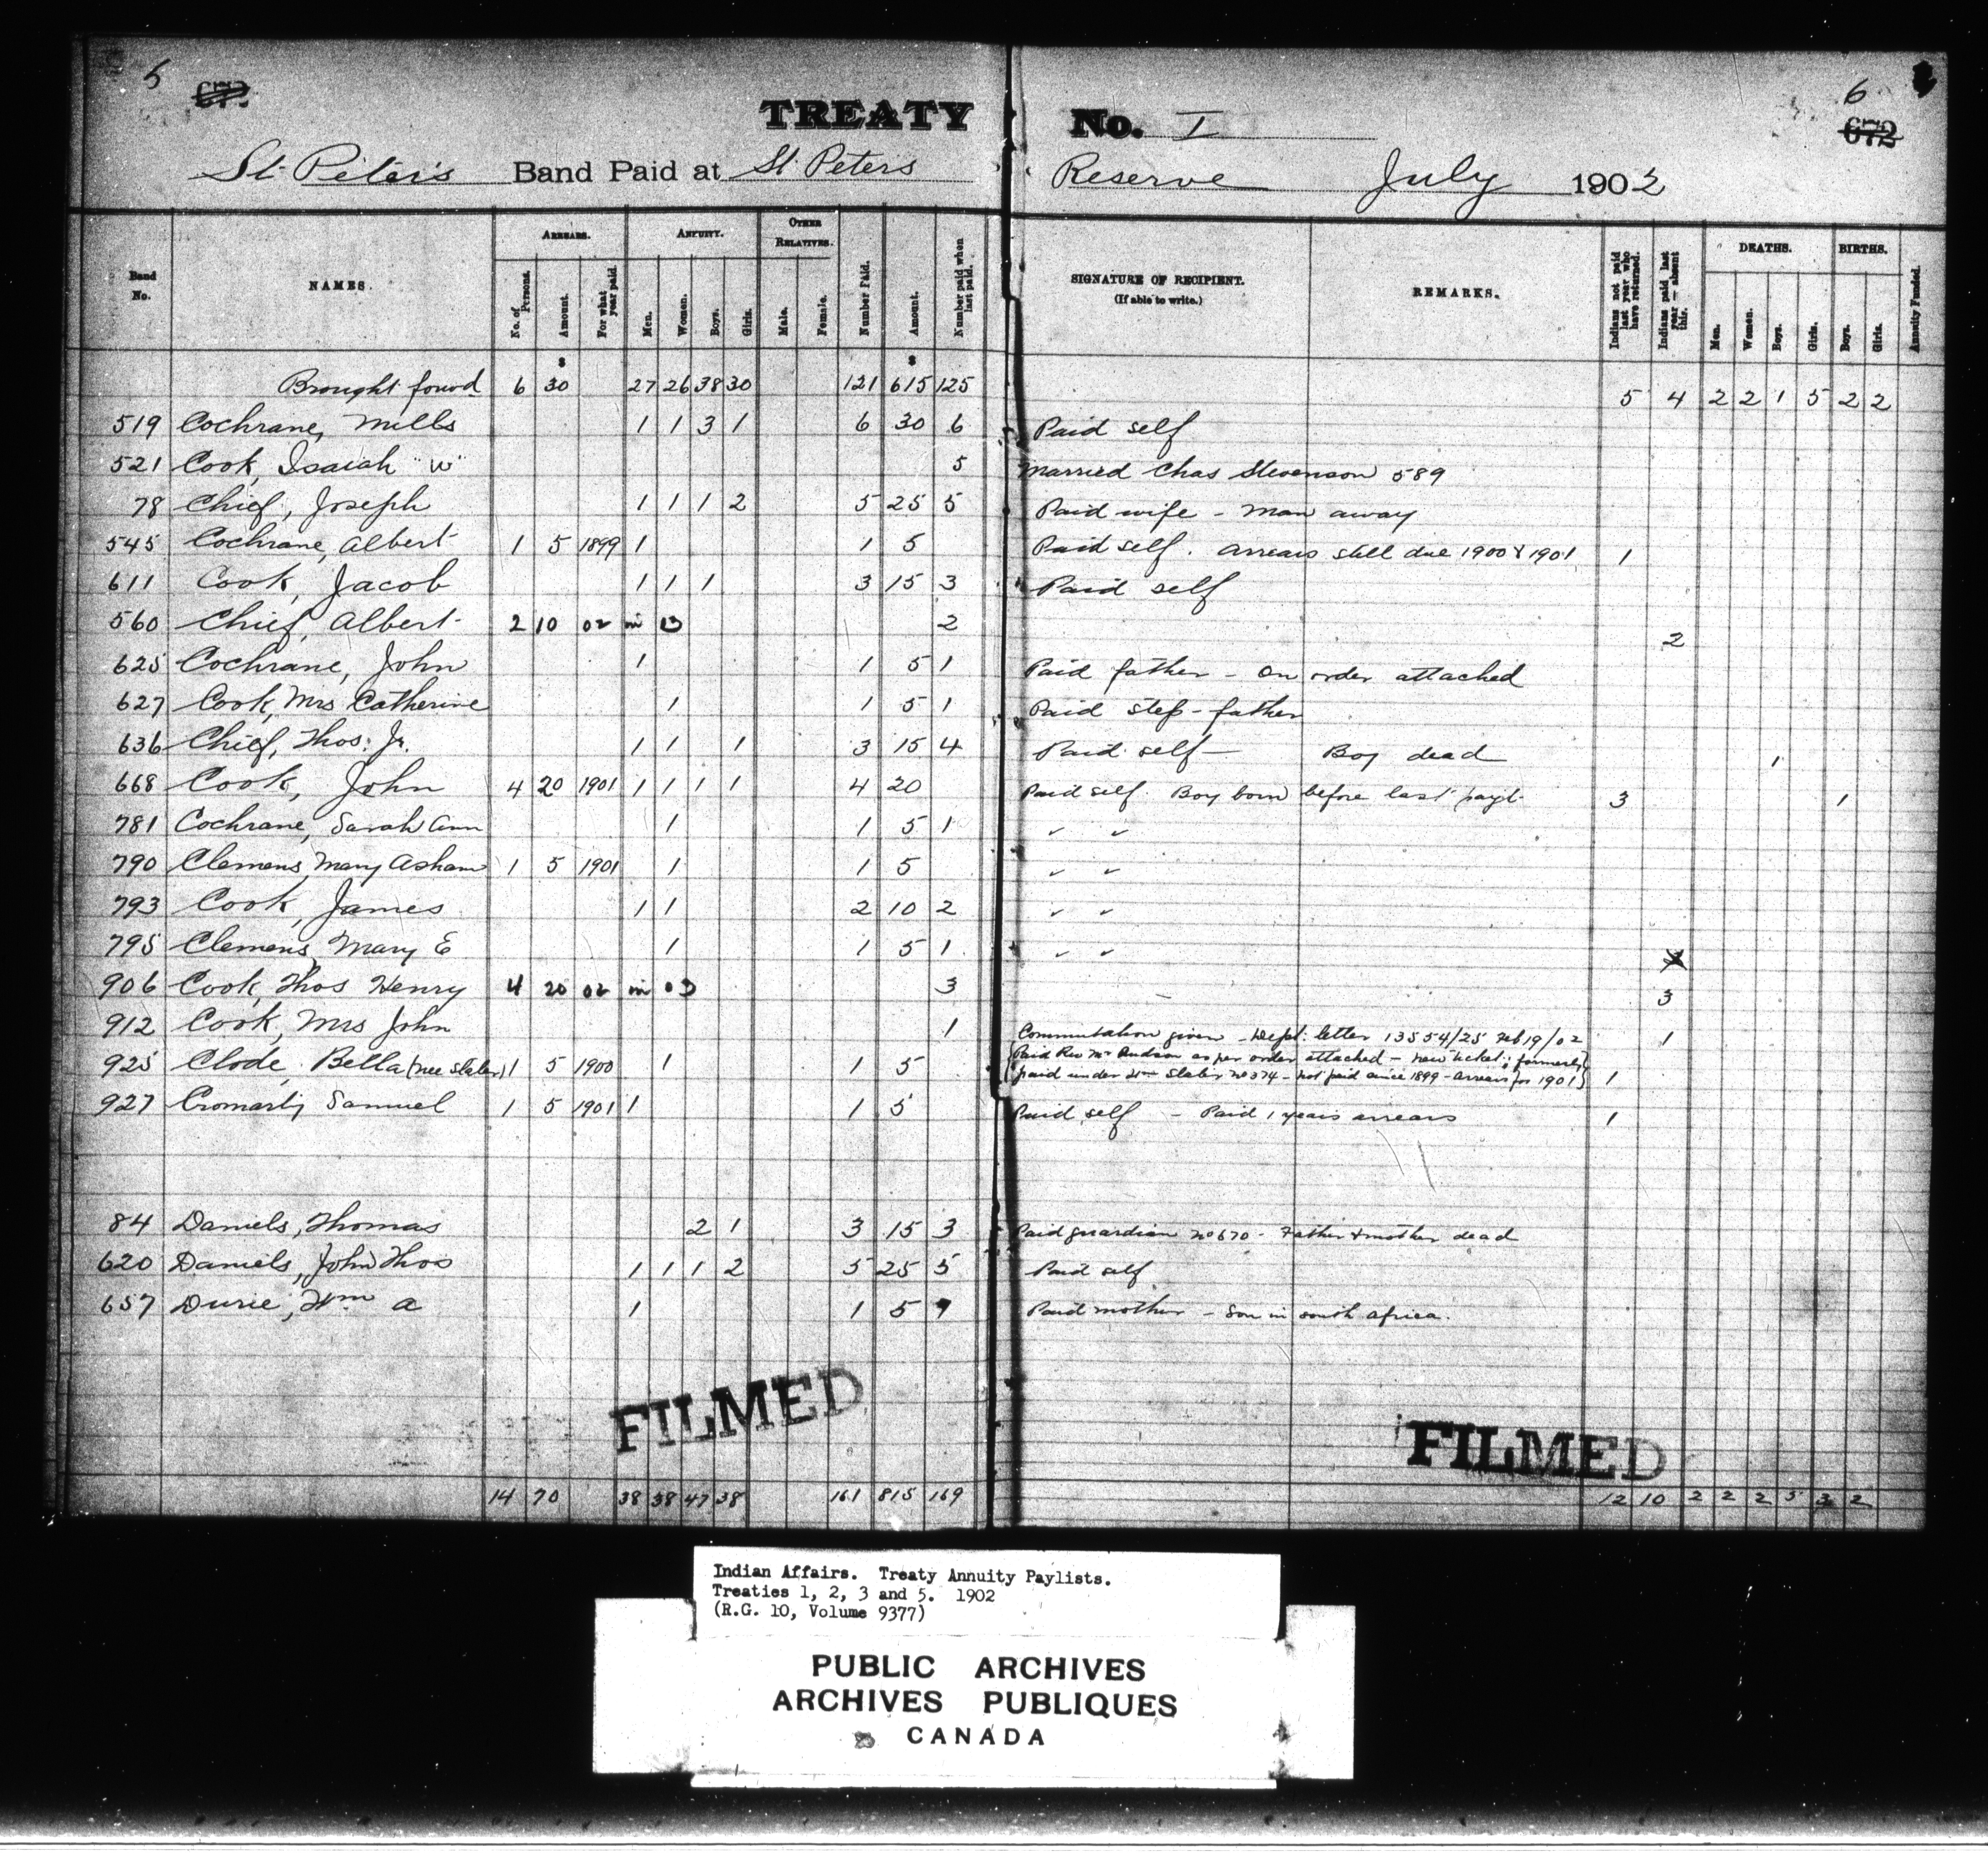 5 672 6 672
TREATY No. I
St. Peter's Band Paid at St Peters Reserve July 1902
Band No. NAMES. ARREARS. No. of Persons. Amount. For what year paid. ANNUITY. Men. Women. Boys. Girls. OTHER RELATIVES. Male. Female. Number Paid. Amount. Number paid when last paid. SIGNATURE OF RECIPIENT. (If able to write.) REMARKS. Indians not paid last year who have returned. Indians paid last year — absent this. DEATHS. Men. Women. Boys. Girls. BIRTHS. Boys. Girls. Annuity Funded.
$ $
Brought forwd 6 30 27 26 38 30 121 615 125 5 4 2 2 1 5 2 2
519 Cochrane, Mills 1 1 3 1 6 30 6 Paid self
521 Cook, Isaiah "W" 5 Married Chas Stevenson 589
78 Chief, Joseph 1 1 1 2 5 25 5 Paid wife - Man away
545 Cochrane, Albert 1 5 1899 1 1 5 Paid self. Arrears still due 1900 & 1901 1
611 Cook, Jacob 1 1 1 3 15 3 Paid self
560 Chief, Albert 2 10 02 in 03 2 2
625 Cochrane, John 1 1 5 1 Paid father - On order attached
627 Cook, Mrs Catherine 1 1 5 1 Paid step-father
636 Chief, Thos. Jr. 1 1 1 3 15 4 Paid self — Boy dead 1
668 Cook, John 4 20 1901 1 1 1 1 4 20 Paid self. Boy born before last payt. 3 1
781 Cochrane, Sarah Ann 1 1 5 1 ✓ ✓
790 Clemens, Mary Asham 1 5 1901 1 1 5 ✓ ✓
793 Cook, James 1 1 2 10 2 ✓ ✓
795 Clemens, Mary E 1 1 5 1 ✓ ✓
906 Cook, Thos Henry 4 20 02 in 03 3 3
912 Cook, Mrs John 1 Commutation given - Dept. letter 13554/25 Feb 19/02 1
925 Clode, Bella (nee Slater) 1 5 1900 1 1 5 {Paid Rev Mr Hudson as per order attached - new ticket; formerly}
{paid under Wm Slater No 374 - not paid since 1899 - arrears for 1901} 1
927 Cromarty Samuel 1 5 1901 1 1 5 Paid self - Paid 1 years arrears 1
84 Daniels, Thomas 2 1 3 15 3 Paid guardian No 670 - Father & mother dead
620 Daniels, John Thos 1 1 1 2 5 25 5 Paid self
657 Durie, Wm A 1 1 5 Paid mother - Son in south Africa.
FILMED FILMED
14 70 38 38 47 38 161 815 169 12 10 2 2 2 5 3 2
Indian Affairs. Treaty Annuity Paylists.
Treaties 1, 2, 3 and 5. 1902
(R.G. 10, Volume 9377)
PUBLIC ARCHIVES
ARCHIVES PUBLIQUES
CANADA